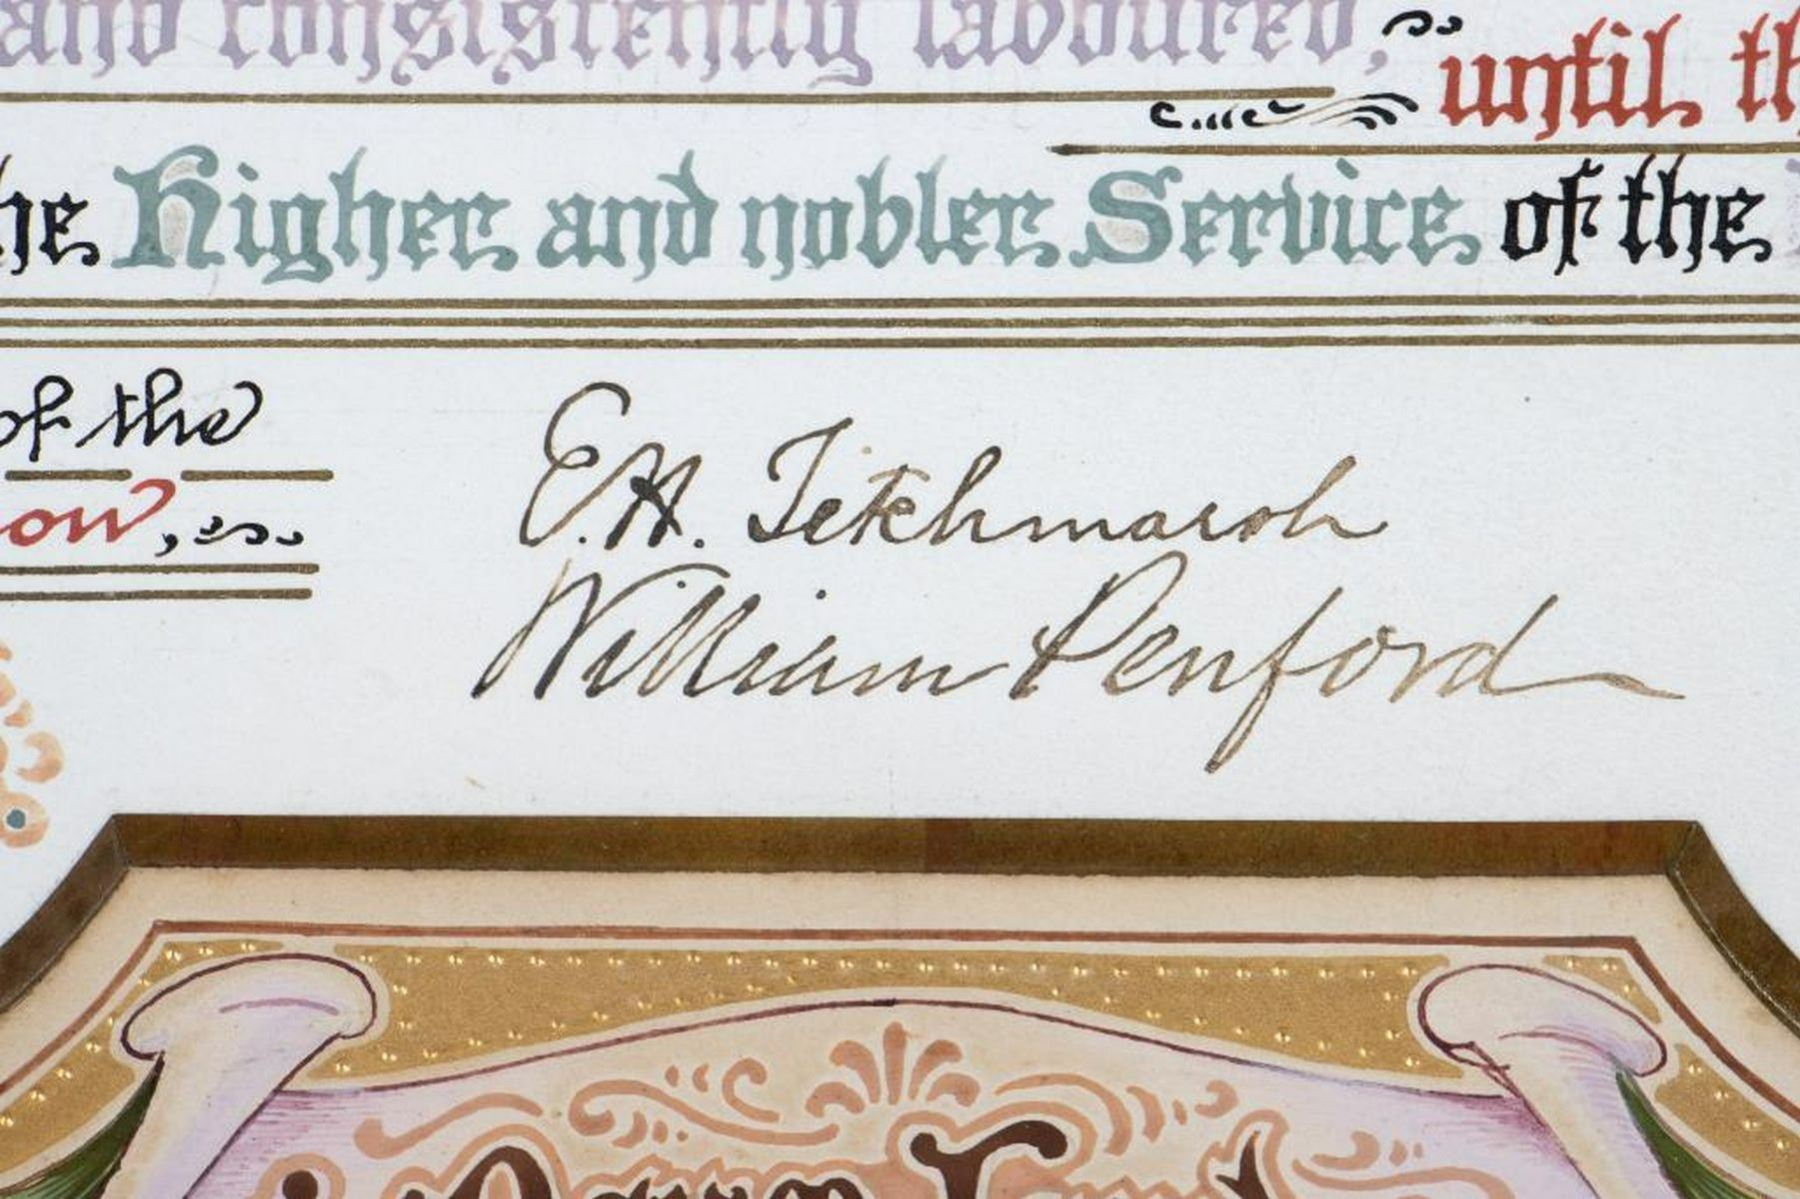 and consistently laboured, until
he Higher and nobler Service of the
of the
ow,
E.H. Titchmarsh
William Penford